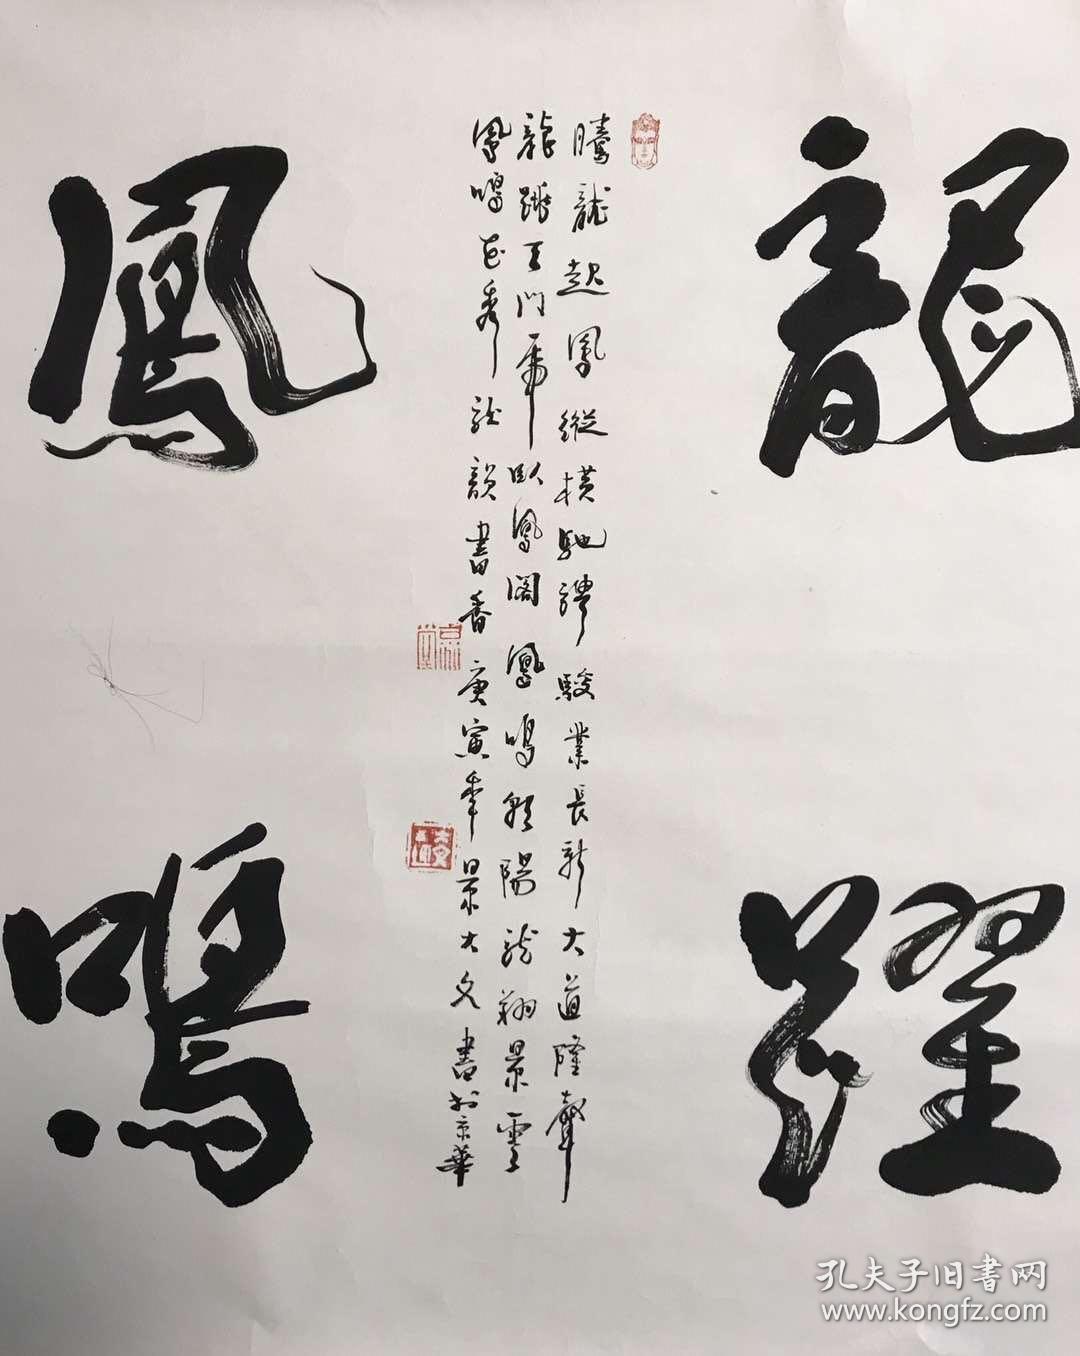 龍躍
鳳鳴
騰龍起鳳縱橫馳譽駿業長新大道隆聲
龍躍天門虎臥鳳閣鳳鳴朝陽龍翔景雲
鳳鳴
韻書香庚寅年景大文書於京華
孔夫子旧書网
www.kongfz.com